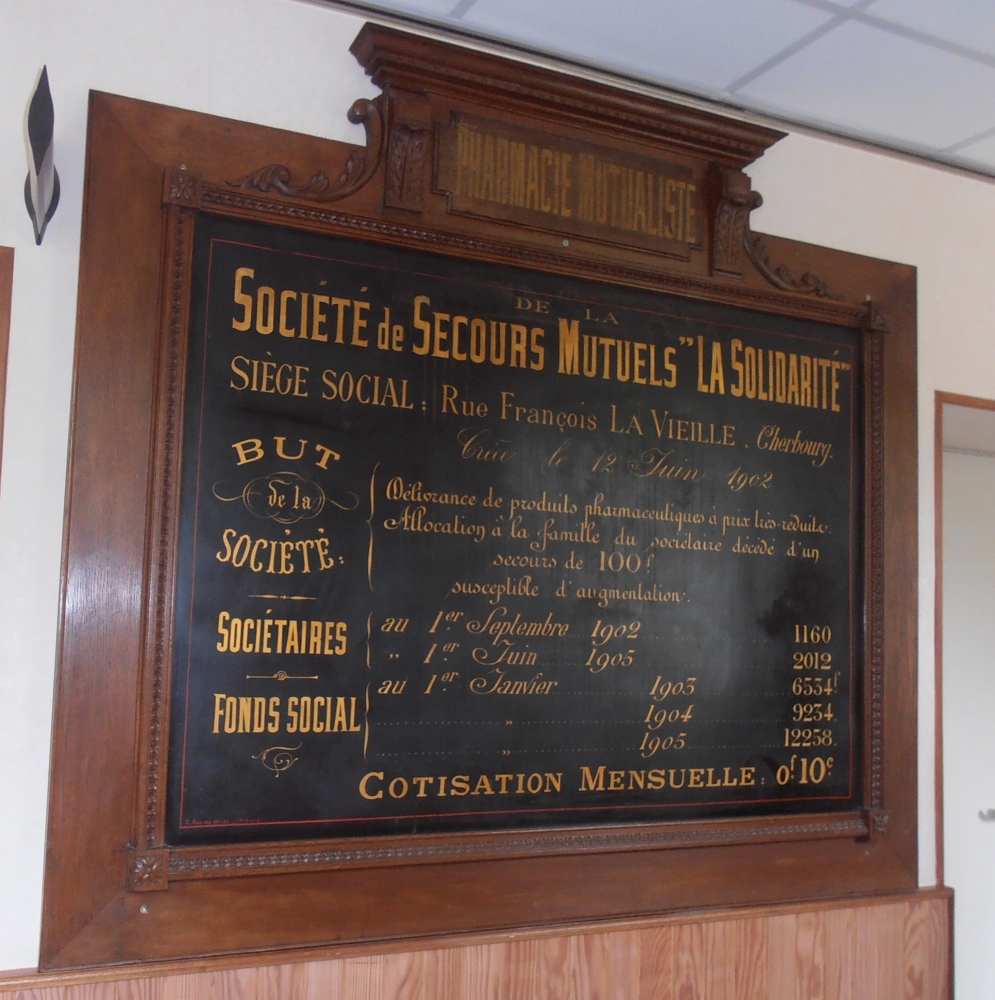 PHARMACIE MUTUALISTE
DE LA
SOCIÉTÉ de SECOURS MUTUELS "LA SOLIDARITÉ"
SIÈGE SOCIAL : Rue François LA VIEILLE . Cherbourg.
Créée le 12 Juin 1902
BUT
de la
SOCIÉTÉ :
Délivrance de produits pharmaceutiques à prix très-réduits.
Allocation à la famille du sociétaire décédé d'un
secours de 100f
susceptible d'augmentation.
SOCIÉTAIRES
au 1er Septembre 1902 1160
" 1er Juin 1905 2012
FONDS SOCIAL
au 1er Janvier 1903 6534f
" 1904 9234
" 1905 12258
COTISATION MENSUELLE : 0f 10c